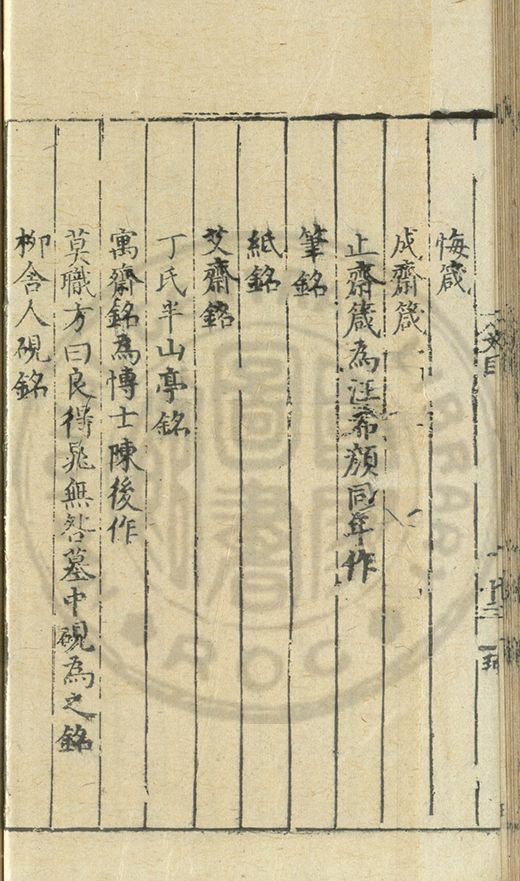 悔箴
成齋箴
止齋箴為汪希顏同年作
筆銘
紙銘
艾齋銘
丁氏半山亭銘
寓齋銘為博士陳後作
莫職方曰良得晁無咎墓中硯為之銘
柳舍人硯銘
文目
十三
ROC